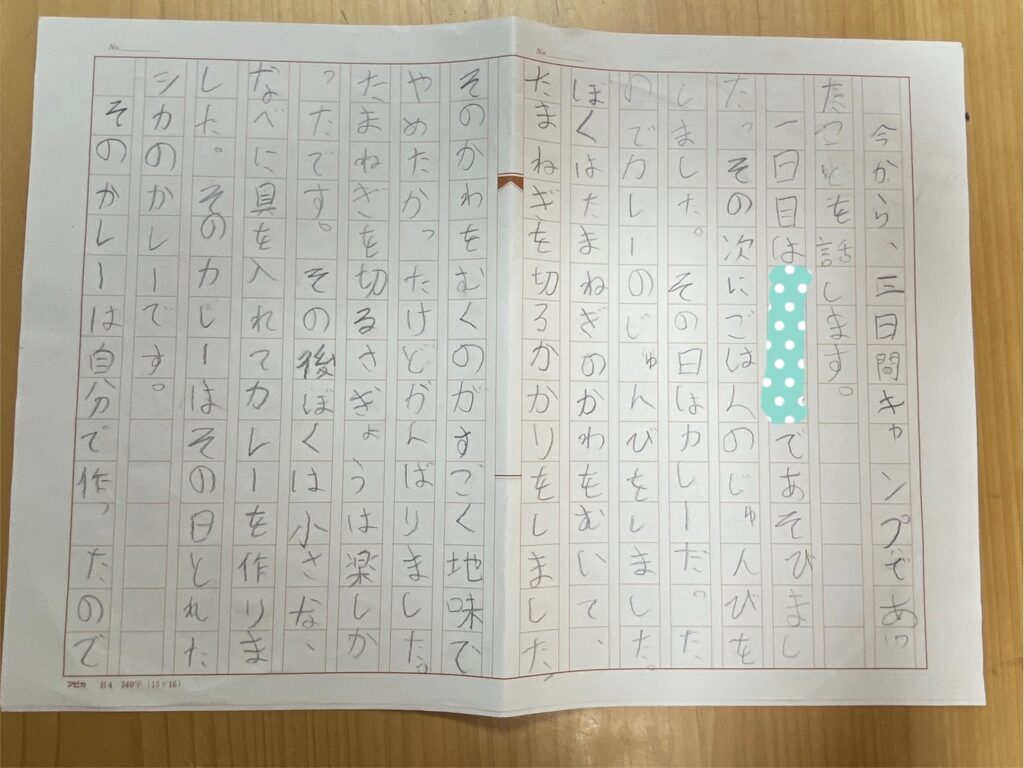 今から、三日間キャンプであっ
たことを話します。
一日目は であそびまし
た。その次にごはんのじゅんびを
しました。その日はカレーだ。た
のでカレーのじゅんびをしました。
ぼくはたまねぎのかわをむいて、
たまねぎを切るかかりをしました
そのかわをむくのがすごく地味で
やめたかったけどがんばりました。
たまねぎを切るさぎょうは楽しか
ったです。その後ぼくは小さな、
なべに具を入れてカレーを作りま
した。そのカレーはその日とれた
シカのカレーです。
そのカレーは自分で作ったので
No.
No.
アピカ B4 240字(15×16)